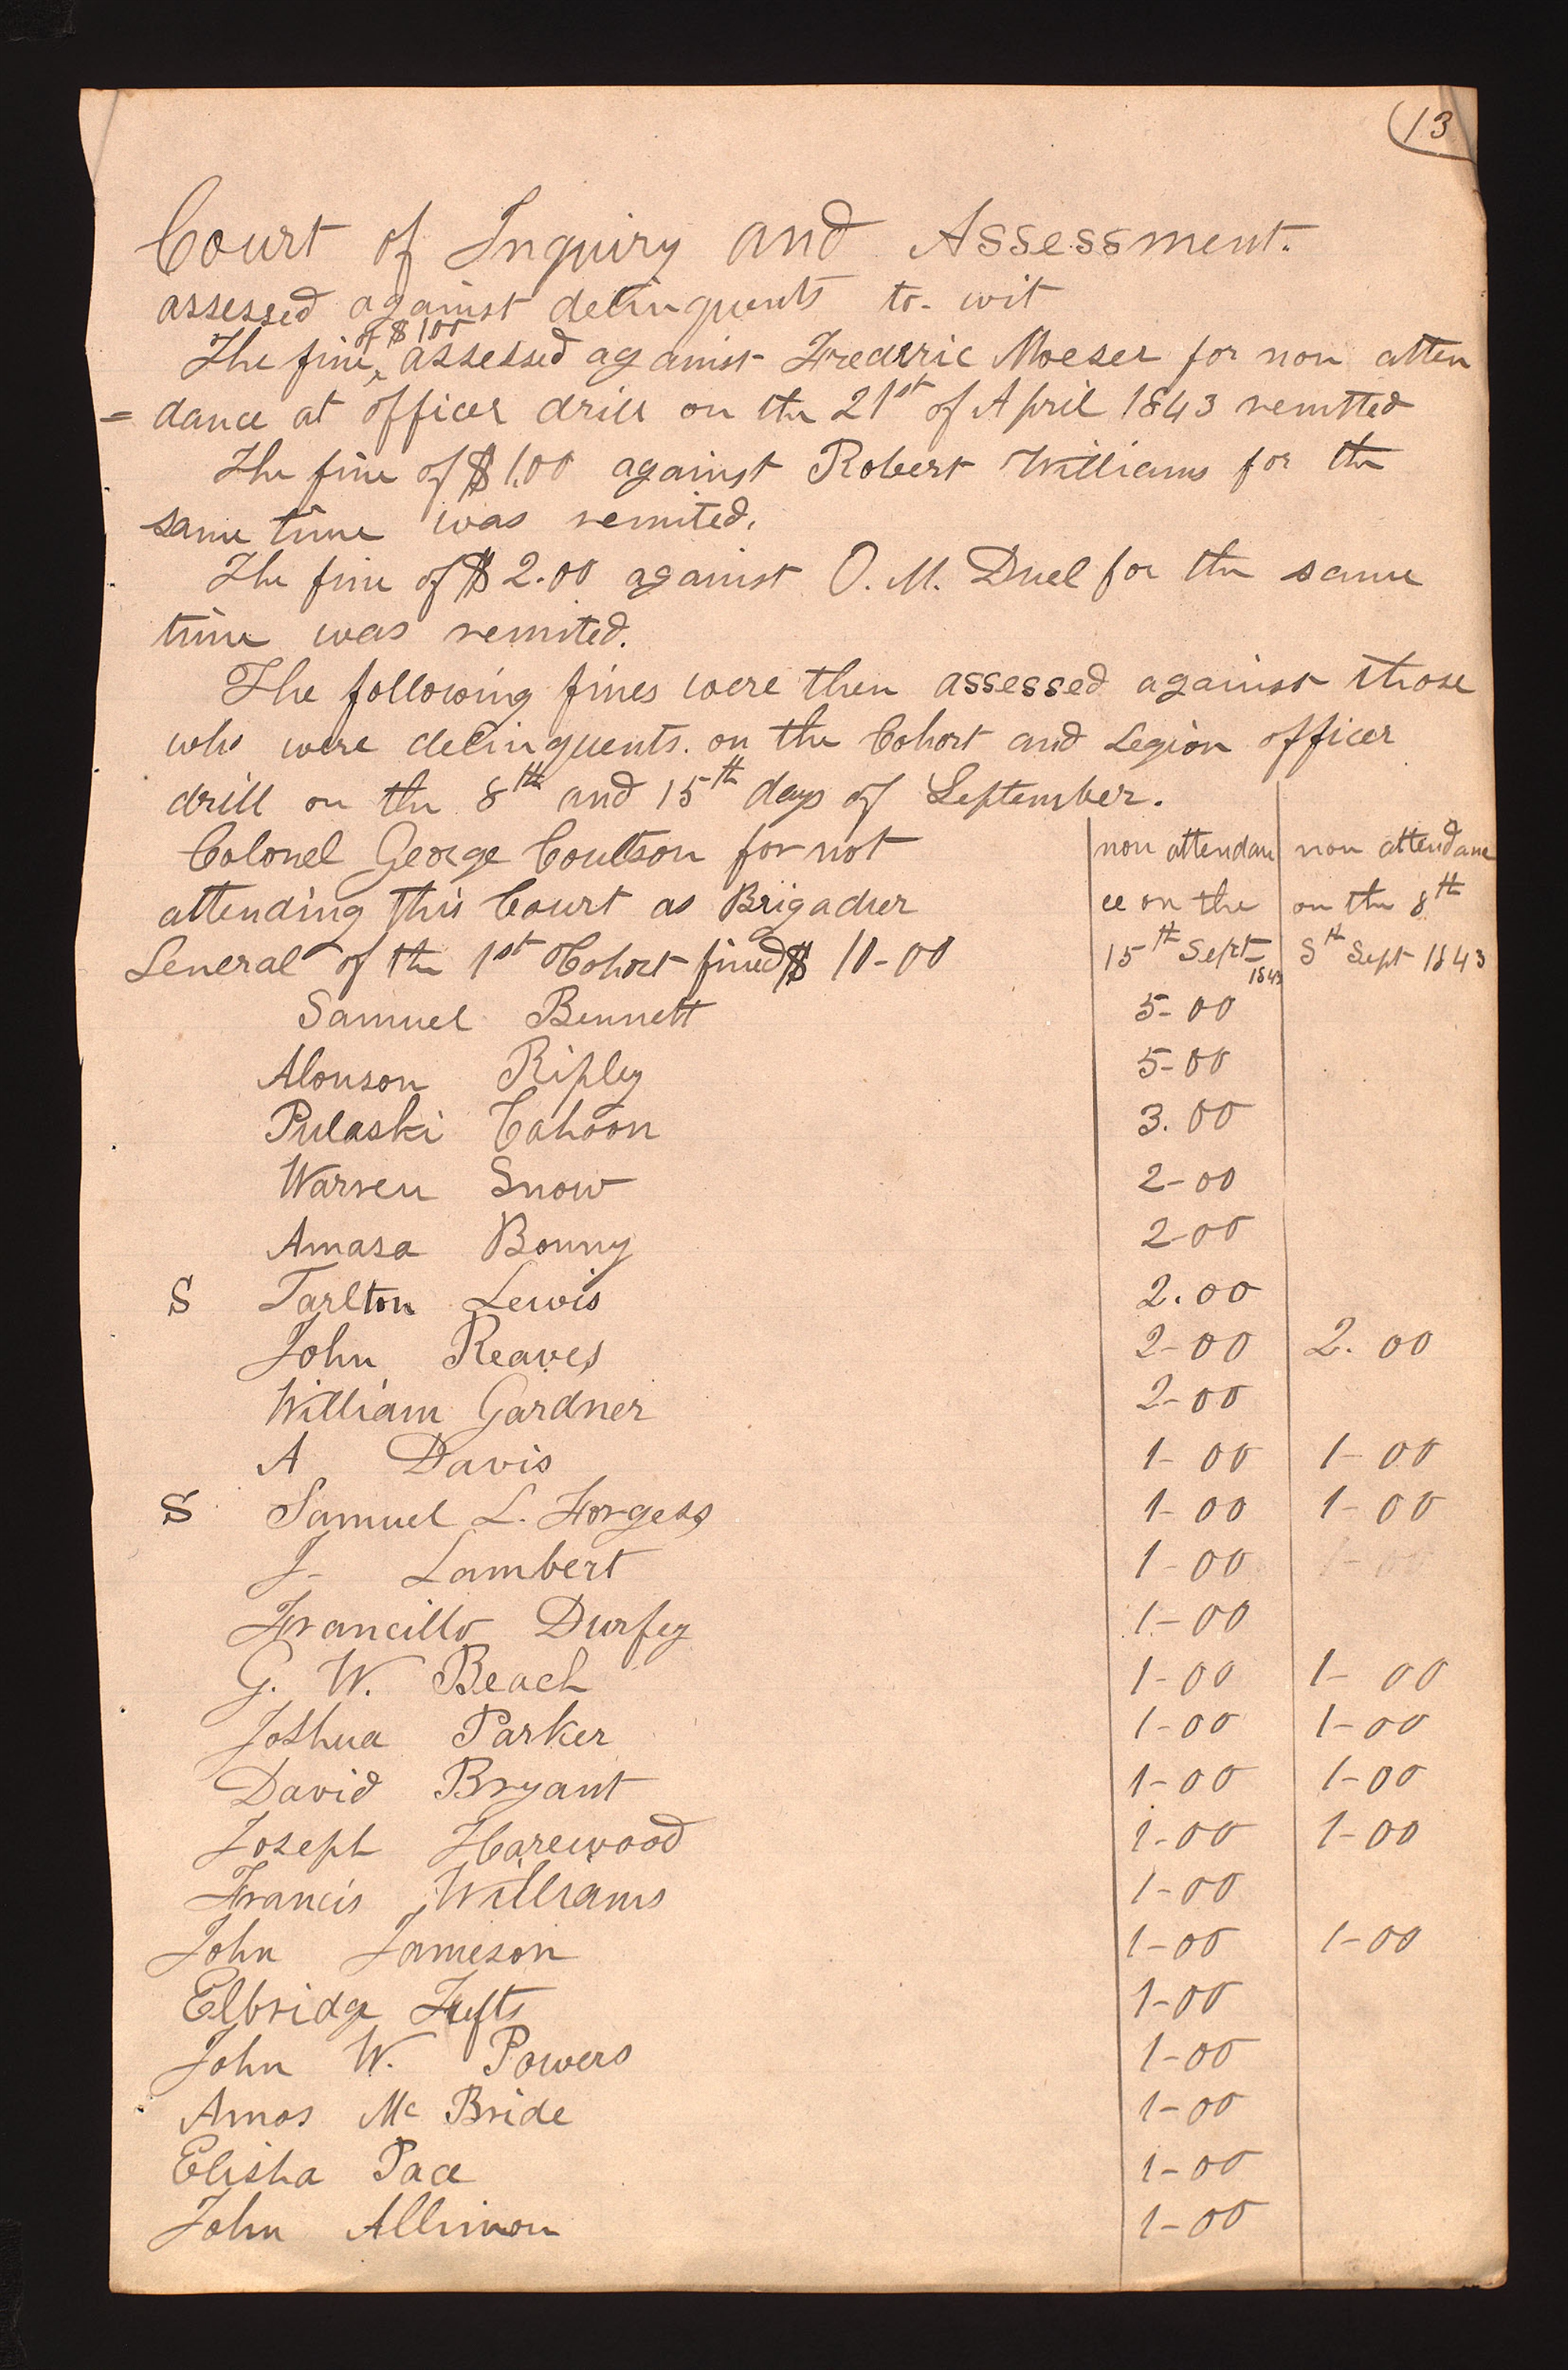 13
Court of Inquiry and Assessment.
assessed against delinquents to- wit
of $1 00
The fine ^ assessed against Frederric Moeser for non atten
= dance at officer drill on the 21st of April 1843 remitted
The fine of $1.00 against Robert Williams for the
same time was remited.
The fine of $2.00 against O. M. Duel for the same
time was remited.
The following fines were then assessed against those
who were delinquents. on the Cohort and Legion officer
drill on the 8th and 15th days of September.
Colonel George Coultson for not | non attendan | non attendane
attending this Court as Brigadier | ce on the | on the 8th
General of the 1st Cohort fined $ 10-00 | 15th Sept- 1843 | Sth Sept 1843
Samuel Bennett 5-00
Alonson Ripley 5-00
Pulaski Cahoon 3.00
Warren Snow 2-00
Amasa Bonny 2-00
S Tarlton Lewis 2.00
John Reaves 2-00 2.00
William Gardner 2-00
A Davis 1-00 1-00
S Samuel L. Forgess 1-00 1-00
J- Lambert 1-00 1-00
Francillo Durfey 1-00
G. W. Beach 1-00 1-00
Joshua Parker 1-00 1-00
David Bryant 1-00 1-00
Joseph Harewood 1-00 1-00
Francis Williams 1-00
John Jameson 1-00 1-00
Elbridge Tufts 1-00
John W. Powers 1-00
Amos Mc Bride 1-00
Elisha Pace 1-00
John Allinson 1-00